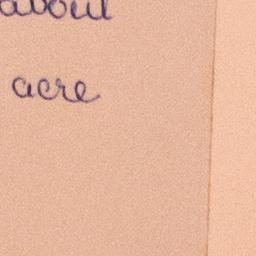 about
acre